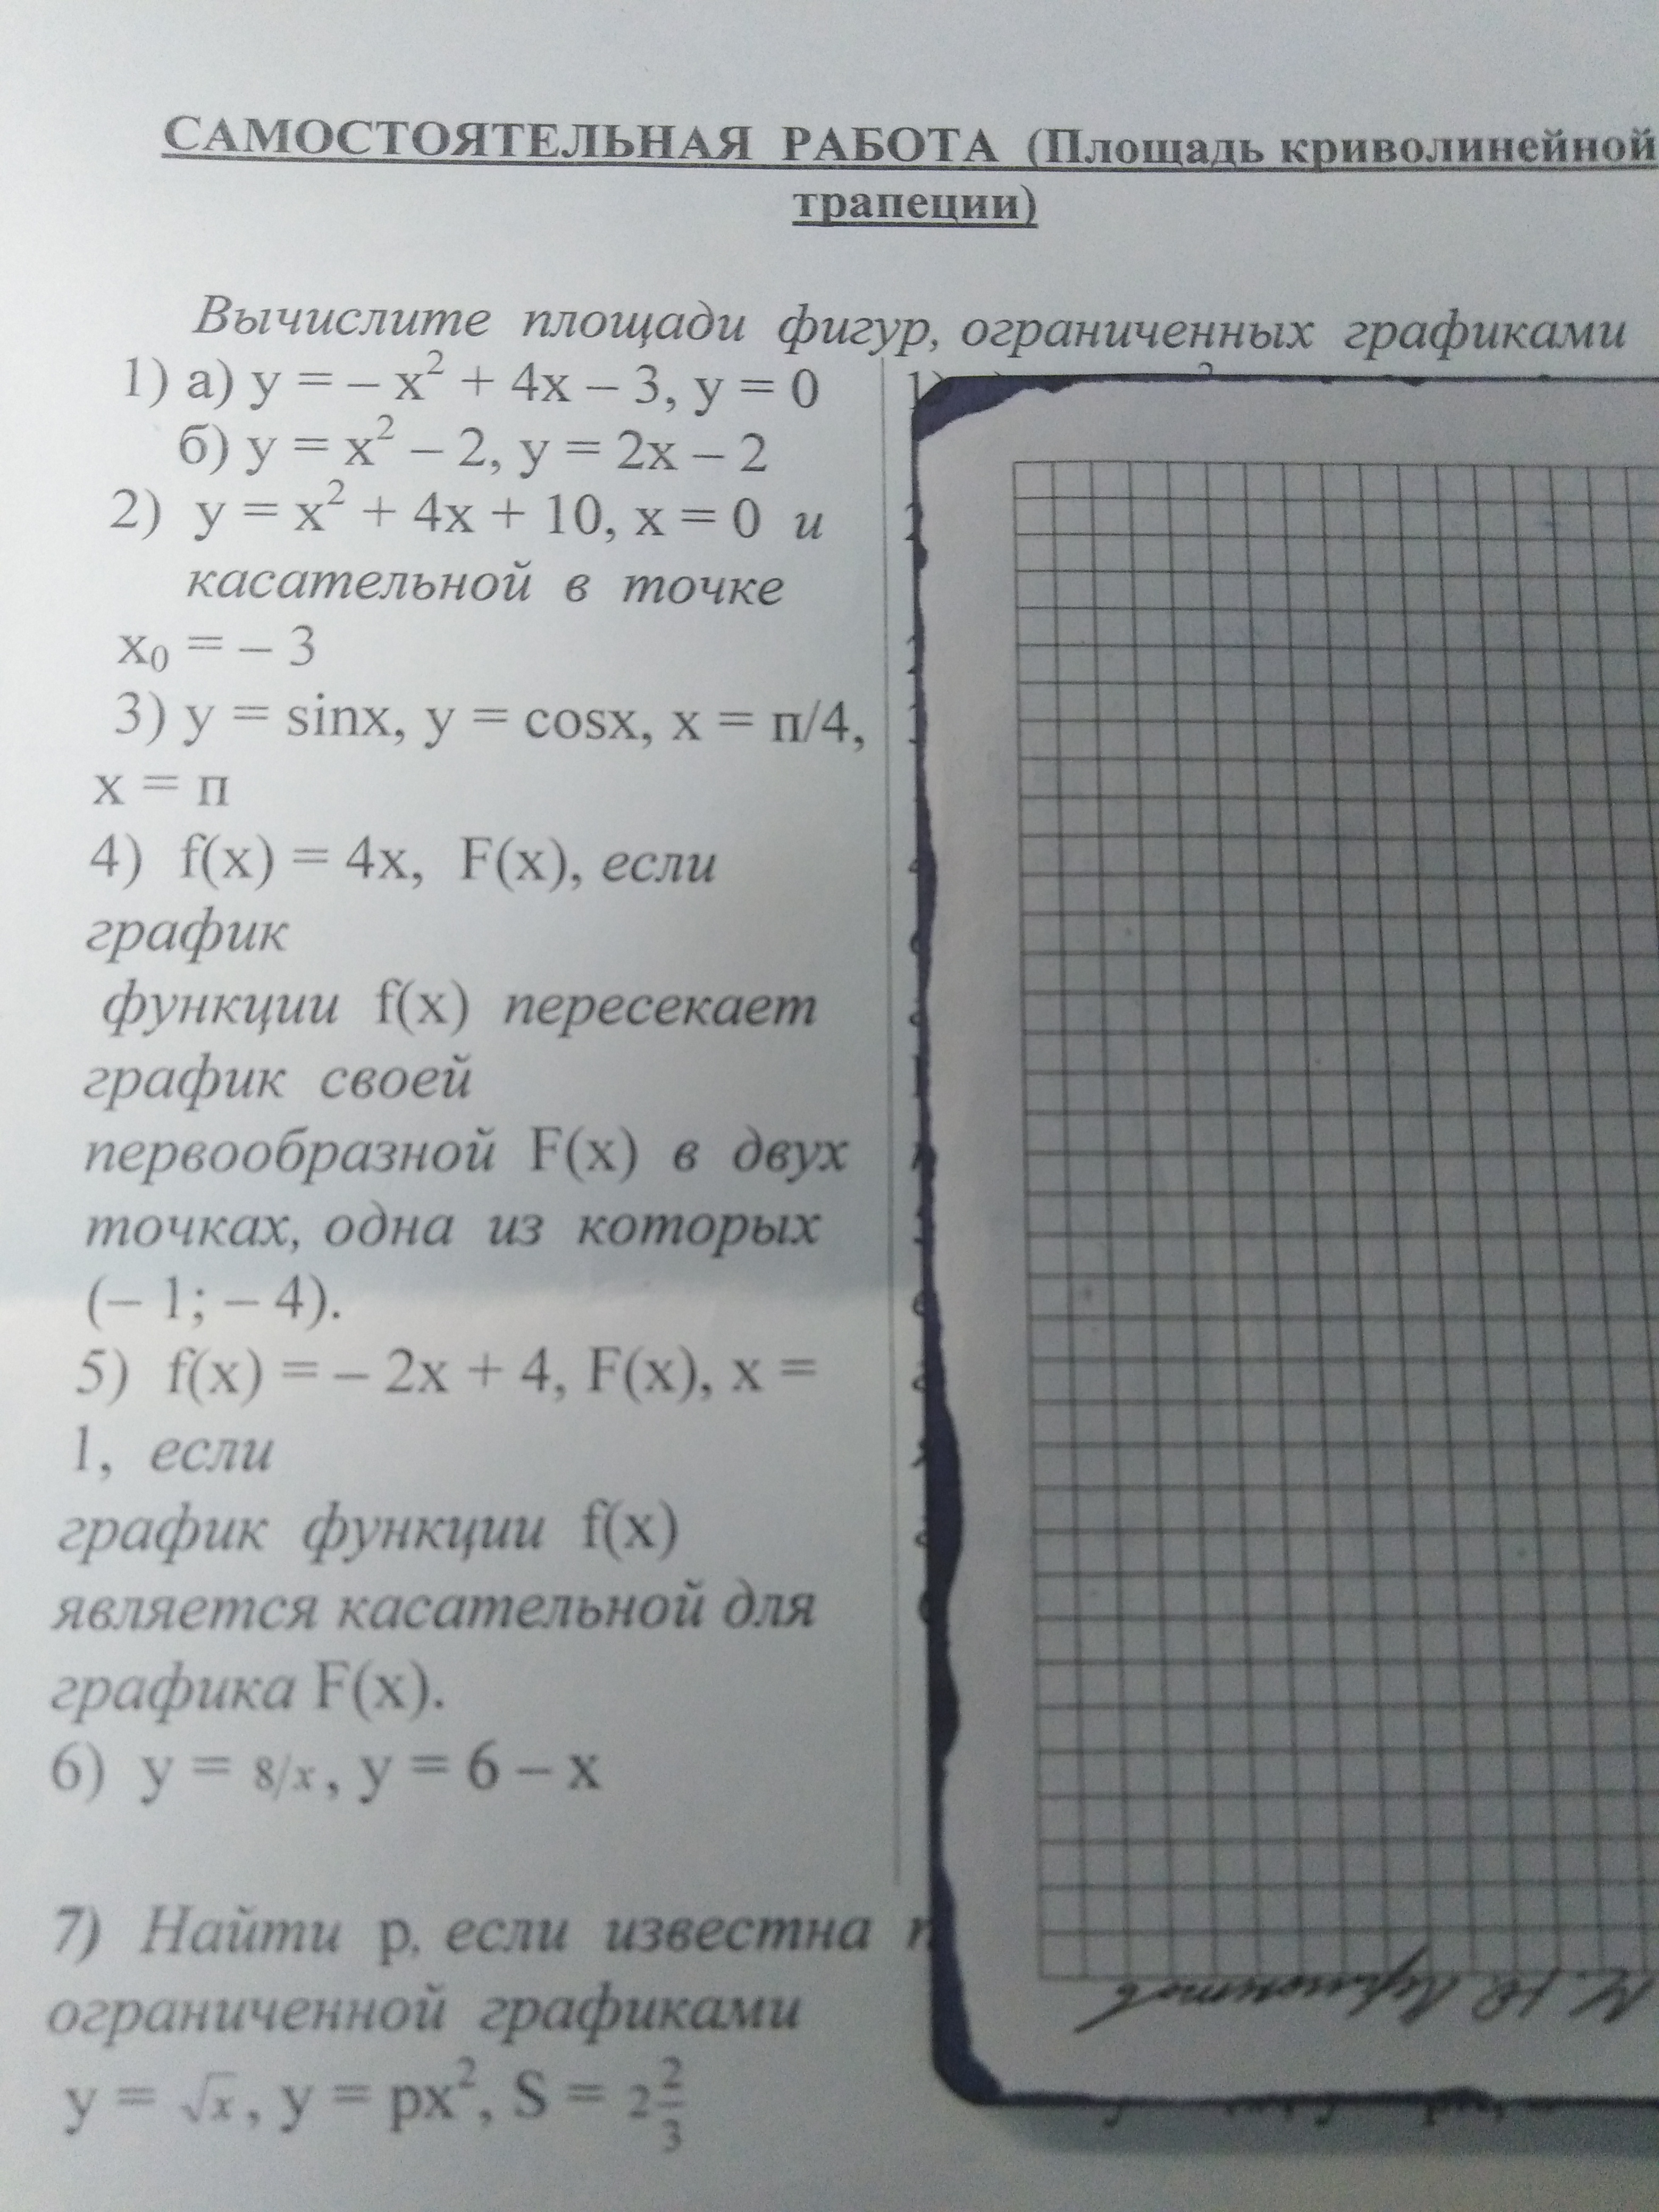 САМОСТОЯТЕЛЬНАЯ РАБОТА (Площадь криволинейной
трапеции)
Вычислите площади фигур, ограниченных графиками
1) а) y = – x² + 4x – 3, y = 0
б) y = x² – 2, y = 2x – 2
2) y = x² + 4x + 10, x = 0 и
касательной в точке
x₀ = – 3
3) y = sinx, y = cosx, x = п/4,
x = п
4) f(x) = 4x, F(x), если
график
функции f(x) пересекает
график своей
первообразной F(x) в двух
точках, одна из которых
(– 1; – 4).
5) f(x) = – 2x + 4, F(x), x =
1, если
график функции f(x)
является касательной для
графика F(x).
6) y = 8/x, y = 6 – x
7) Найти p, если известна
ограниченной графиками
y = √x, y = px², S = 2 2/3
М. Ю. Лермонтов